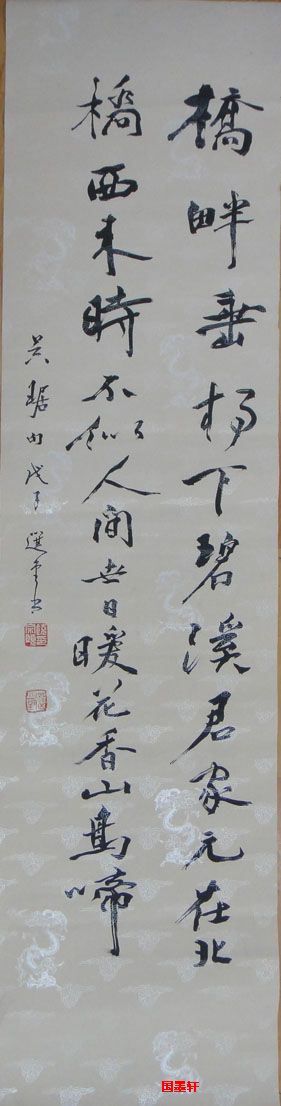 橋畔垂楊下碧溪君家元在北
橋西來時不似人間世日暖花香山鳥啼
吴琚句戊子選堂書
国墨轩